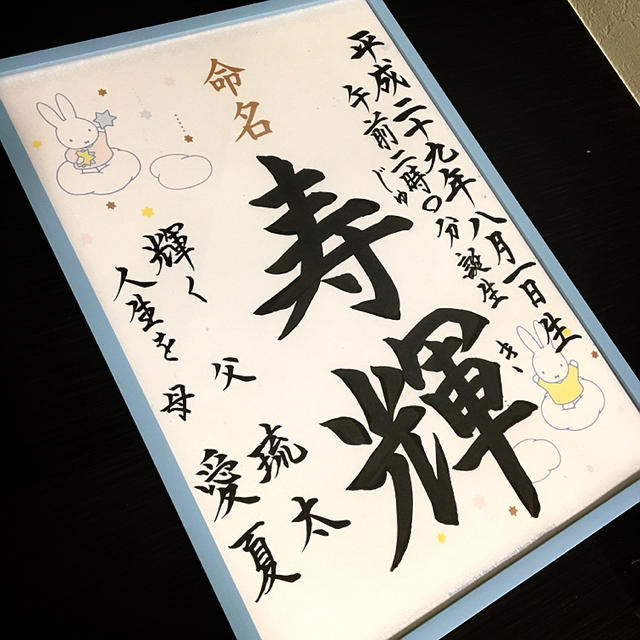 平成二十九年八月一日生
午前二時〇分誕生
じゅ
き
寿輝
命名
父 琉太
母 愛夏
輝く
人生を